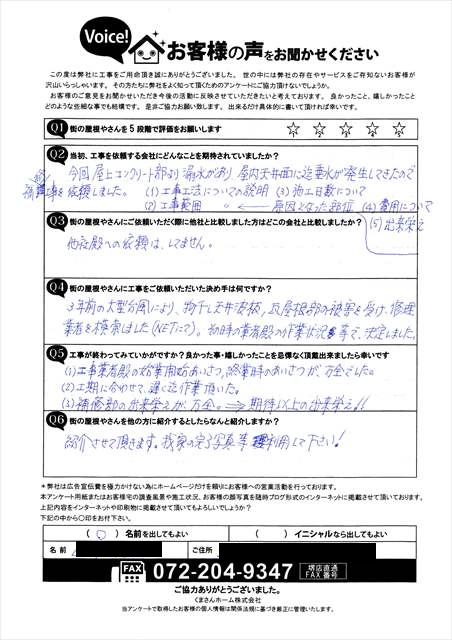 Voice!
お客様の声をお聞かせください
この度は弊社に工事をご用命頂き誠にありがとうございました。世の中には弊社の存在やサービスをご存知ないお客様が
沢山いらっしゃいます。その方たちに弊社をよく知って頂くためのアンケートにご協力頂けないでしょうか。
お客様のご意見をお聞かせいただき今後の活動に反映させていただきたいと考えております。良かったこと、嬉しかったこと
どのような些細な事でも結構です。是非ご協力お願い致します。出来るだけ具体的に書いて頂ければ幸いです。
Q1 街の屋根やさんを5段階で評価をお願いします
☆1 ☆2 ☆3 ☆4 ☆5
Q2 当初、工事を依頼する会社にどんなことを期待されていましたか?
今回屋上コンクリート部より漏水があり、屋内天井面に造業水が発生してきたので
補修工事を依頼しました。(1)工事工法についての説明 (3)施工日数について
(2)工事範囲 〃 ← 原因となった部位 (4)費用について
(5)出来栄え
Q3 街の屋根やさんにご依頼いただく際に他社と比較しました方はどこの会社と比較しましたか?
他社殿への依頼は、してません。
Q4 街の屋根やさんに工事をご依頼いただいた決め手は何ですか?
3年前の大型台風により、物干し天井波板、瓦屋根部の被害を受け、修理
業者を検索しました(NETにて)。初時の業者殿の作業状況等で、決定しました。
Q5 工事が終わってみていかがですか?良かった事・嬉しかったことを忌憚なく頂戴出来ましたら幸いです
(1)工事業者殿の始業開始あいさつ、終業時のあいさつが、万全でした。
(2)工期に合わせて、遅くまで作業頂いた。
(3)補修部の出来栄えが、万全。⇒期待以上の出来栄え!!
Q6 街の屋根やさんを他の方に紹介するとしたらなんと紹介しますか?
紹介させて頂きます。我家の完了写真等利用して下さい!
*弊社は広告宣伝費を極力かけない為にホームページだけを頼りにお客様への営業活動を行っております。
本アンケート用紙またはお客様宅の調査風景や施工状況、お客様の顔写真を随時ブログ形式のインターネットに掲載させて頂いております。
上記内容をインターネットや印刷物に掲載させて頂いてもよろしいでしょうか?
下記の中から〇印をお付下さい。
(〇)名前を出してもよい ( )イニシャルなら出してもよい
名前 ご住所
FAX 072-204-9347 堺店直通 FAX番号
ご協力ありがとうございました。
くまさんホーム株式会社
当アンケートで取得したお客様の個人情報は関係法規に基づき厳正に管理いたします。